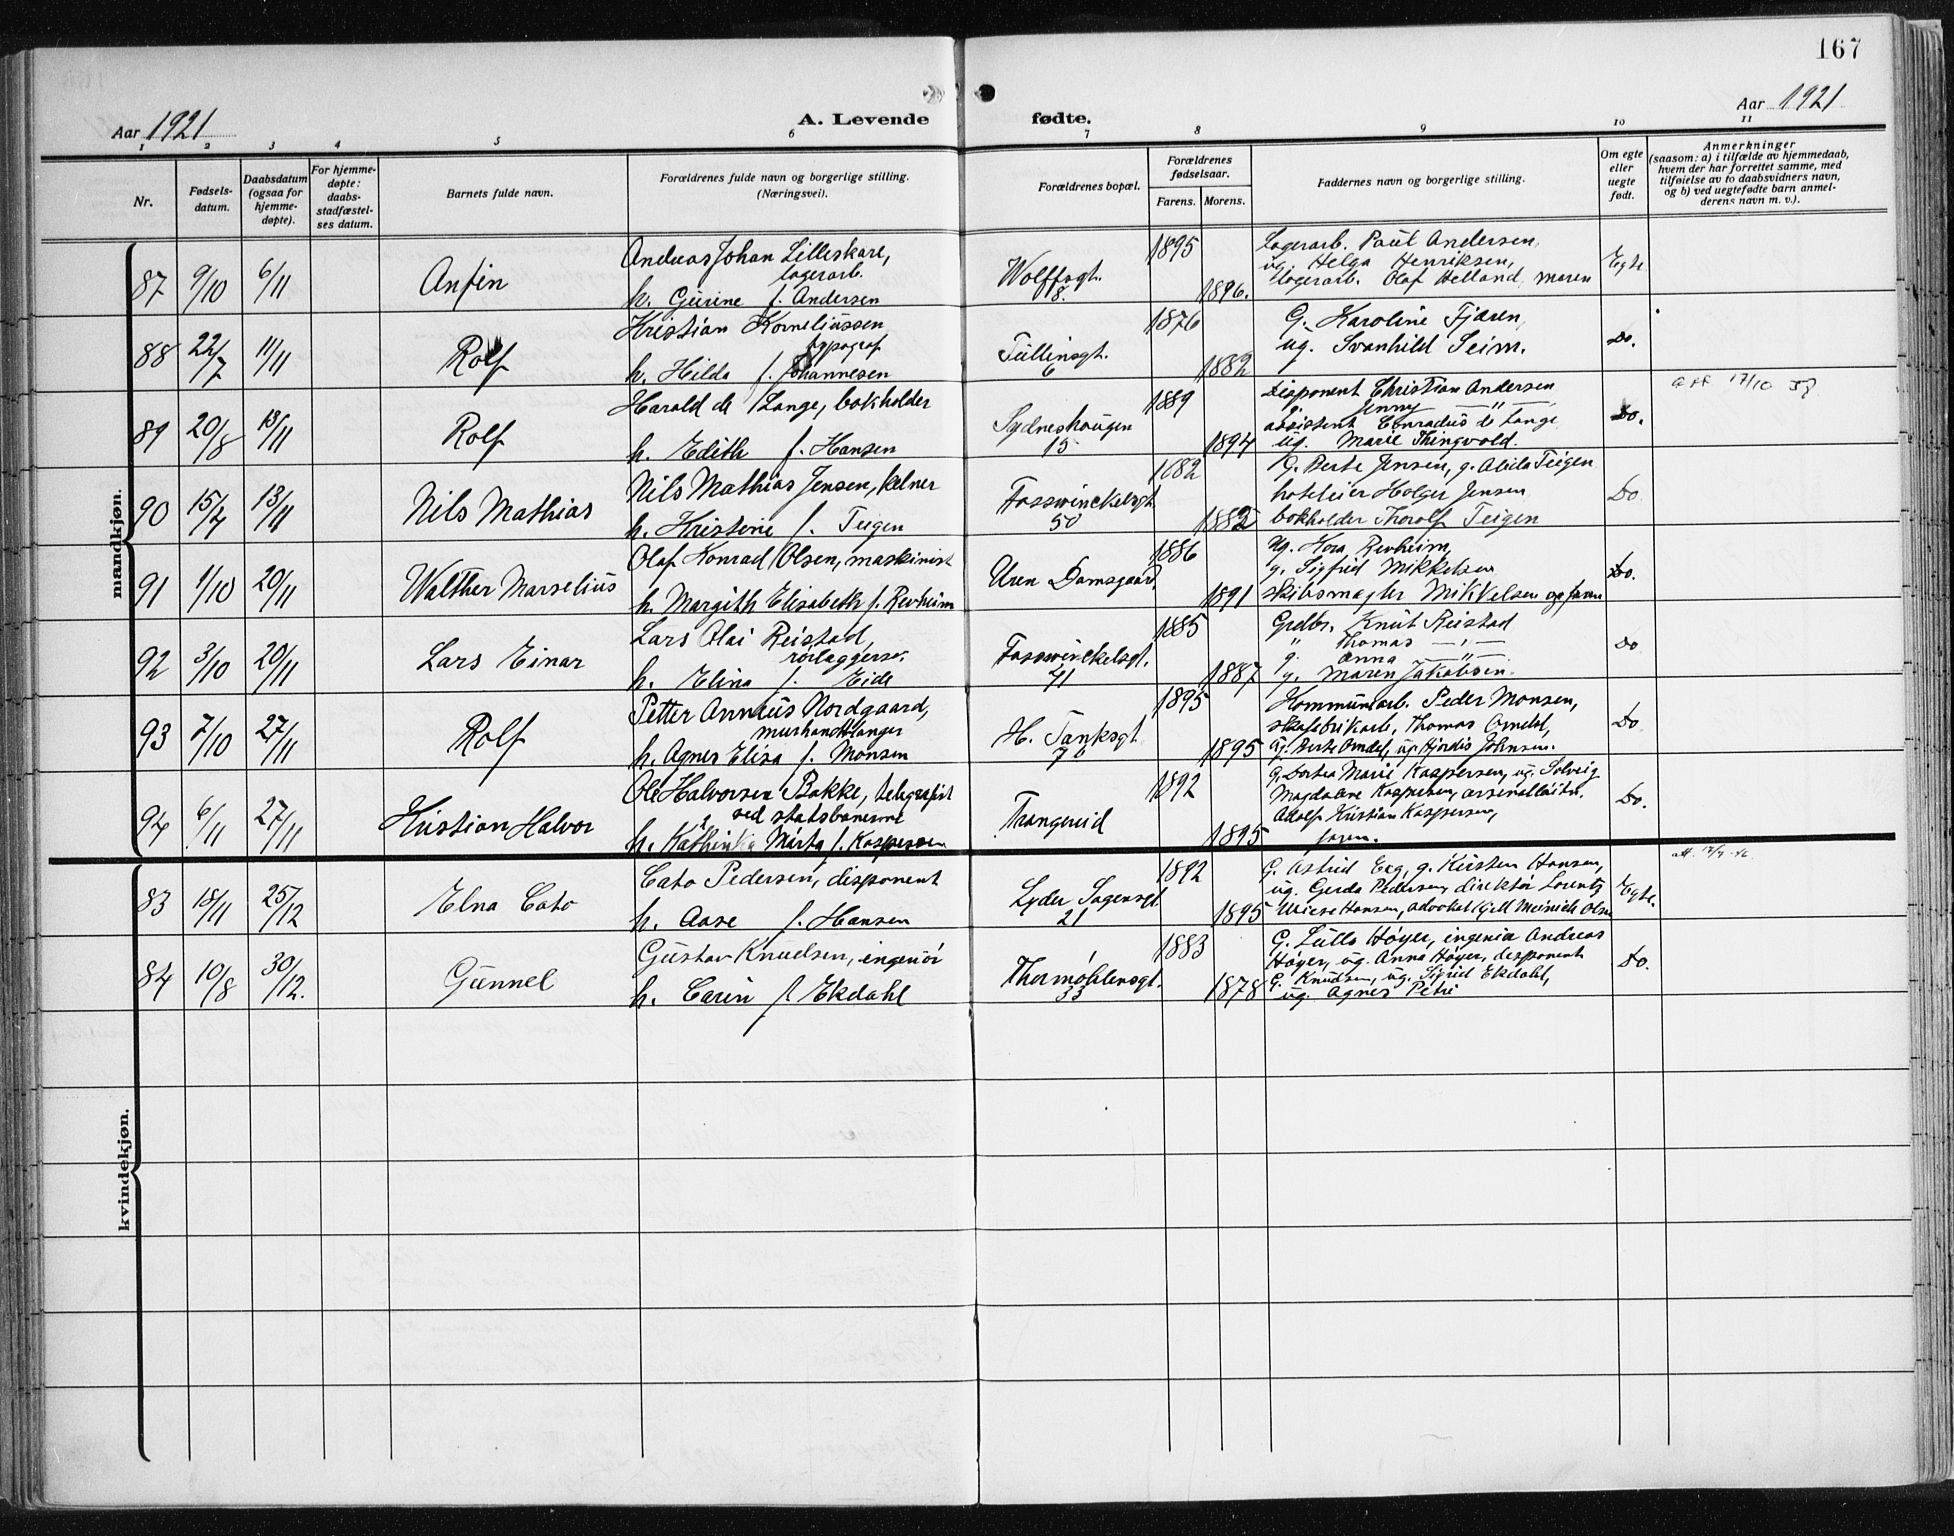 167
Aar 1921
A. Levende fødte.
Aar 1921
1 2 3 4 5 6 7 8 9 10 11
Nr.
Fødsels-
datum.
Daabsdatum
(ogsaa for
hjemme-
døpte).
For hjemme-
døpte:
daabs-
stadfæstel-
ses datum.
Barnets fulde navn.
Forældrenes fulde navn og borgerlige stilling.
(Næringsvei).
Forældrenes bopæl.
Forældrenes
fødselsaar.
Farens. Morens.
Faddernes navn og borgerlige stilling.
Om egte
eller
uegte
født.
Anmerkninger
(saasom: a) i tilfælde av hjemmedaab,
hvem der har forrettet samme, med
tilføielse av to daabsvidners navn,
og b) ved uegtefødte barn anmel-
derens navn m. v.).
mandkjøn.
87 9/10 6/11 Anfin
Andreas Johan Lilleskare,
lagerarb.
h. Gurine f. Andersen
Wolffsgt.
8.
1895
1896.
Lagerarb. Paul Andersen,
ug. Helga Henriksen,
lagerarb. Olaf Helland, moren
Egte
88 22/7 11/11 Rolf
Kristian Korneliussen
typograf
h. Hilda f. Johannesen
Tullinsgt.
6
1876
1882
G. Karoline Fjæren,
ug. Svanhild Seim.
Do.
89 20/8 13/11 Rolf
Harald de Lange, bokholder
h. Edith f. Hansen
Sydneshaugen
15
1889
1894
Disponent Christian Andersen
g. Jenny —"—
assistent Conradus de Lange
ug. Marie Thingvold.
Do.
att 17/10
90 15/4 13/11 Nils Mathias
Nils Mathias Jensen, kelner
h. Kristine f. Teigen
Fosswinckelsgt
50
1882
1882
G. Berte Jensen, g. Alida Teigen
hoteleier Holger Jensen
bokholder Thorolf Teigen
Do
91 1/10 20/11 Walther Marselius
Olaf Konrad Olsen, maskinist
h. Margith Elisabeth f. Revheim
Uren Damsgaard,
1886
1891
Ug. Kora Revheim,
g. Sigfrid Mikkelsen
skibsmægler Mikkelsen og faren
Do.
92 3/10 20/11 Lars Einar
Lars Olai Reistad,
rørlæggersv.
h. Elina f. Eide
Fosswinckelsgt.
41
1885
1887
Grdbr. Knut Reistad
" Thomas —"—
g. Anna —"—
g. Maren Jakobsen.
Do
93 7/10 27/11 Rolf
Petter Annæus Nordgaard,
murhandtlanger
h. Agnes Eliza f. Monsen
H. Tanksgt.
76
1895
1895
Kommunearb. Peder Monsen,
skofabrikarb. Thomas Omdal,
g. Berte Omdal, ug. Hjørdis Johnsen.
Do
94 6/11 27/11 Kristian Halvor
Ole Halvorsen Bakke, telegrafist
ved statsbanerne
h. Kathinka Marta f. Kaspersen
Trengereid
1892
1895
g. Dortea Marie Kaspersen, ug. Solveig
Magdalene Kaspersen, arsenalarbeider
Adolf Kristian Kaspersen,
faren.
Do.
kvindekjøn.
83 18/11 25/12 Elna Cato
Cato Pedersen, disponent
h. Aase f. Hansen
Lyder Sagensgt
21
1892
1895
G. Astrid Eeg, g. Kirsten Hansen,
ug. Gerda Pedersen, direktør Lorentz
Wiese Hansen, advokat Kjell Meinich Olsen
Egte.
84 10/8 30/12. Gunnel
Gustav Knudsen, ingeniør
h. Carin f. Ekdahl
Thormøhlensgt.
33
1883
1878
G. Lulla Høyer, ingeniør Andreas
Høyer, ug. Anna Høyer, disponent
G. Knudsen, ug. Sigrid Ekdahl,
ug. Agnes Petri
Do.